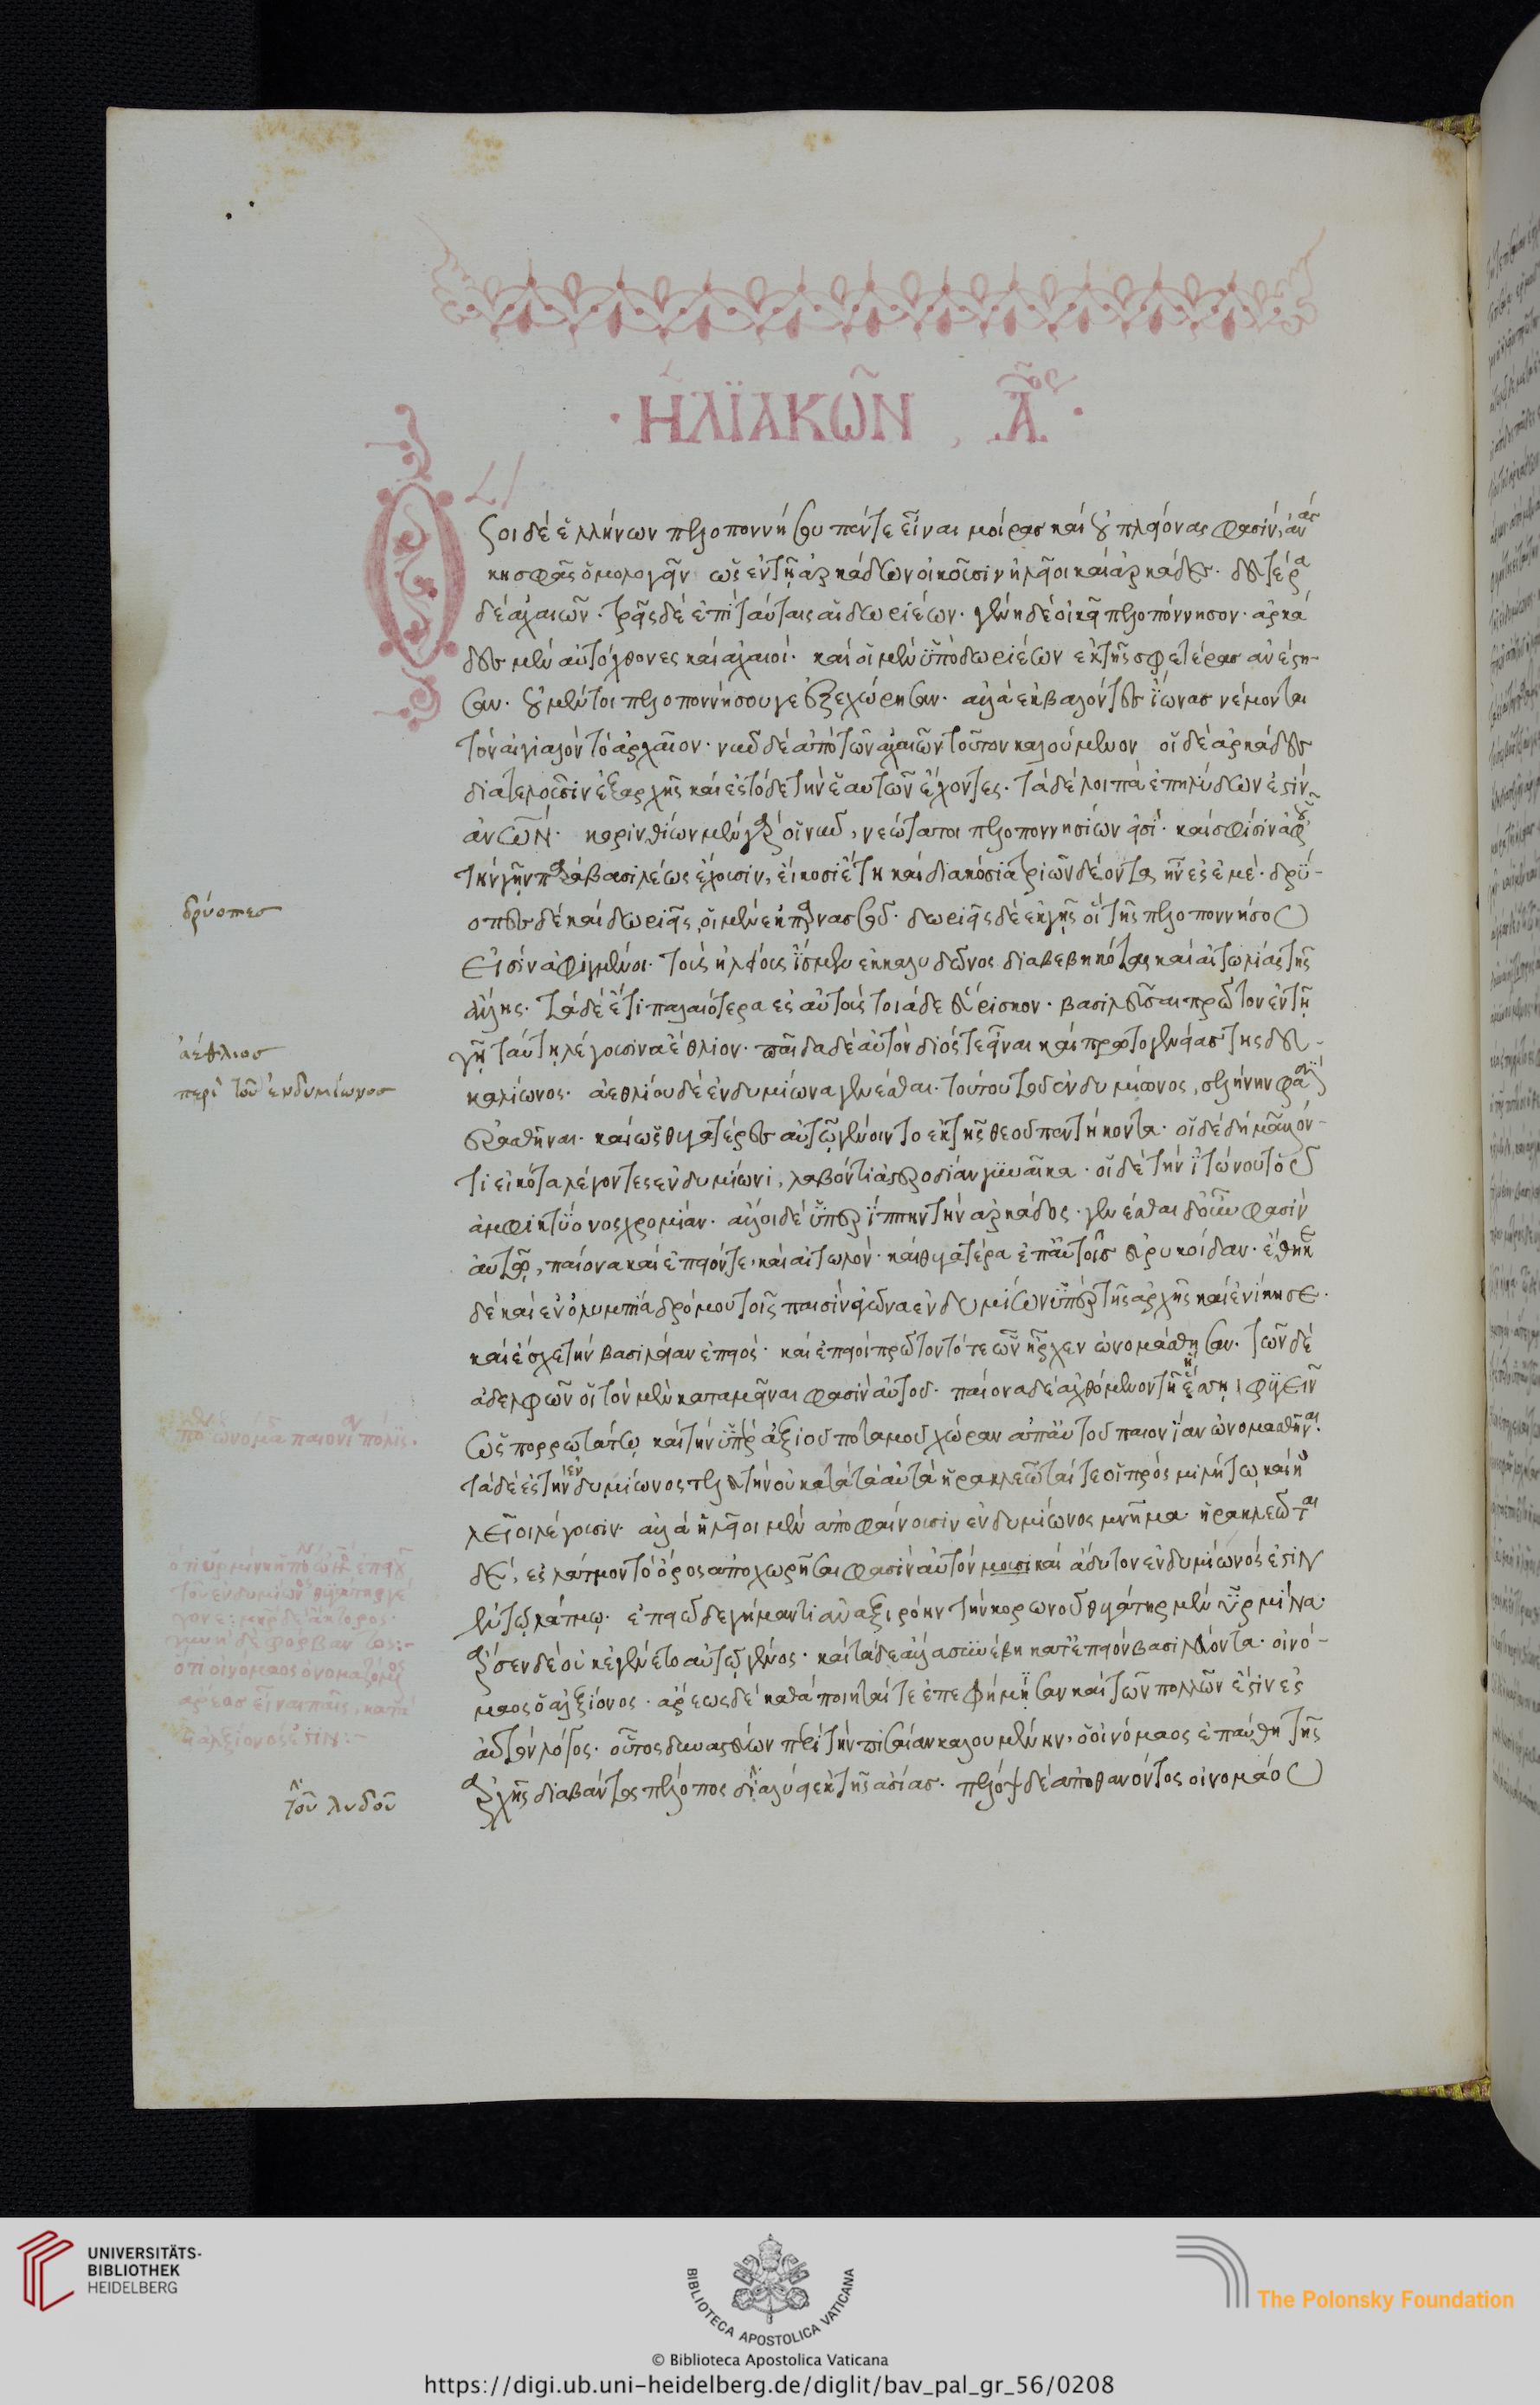 · ΗΛΪΑΚΩ͂Ν , Α͂ος ·
Ὅσοι δέ ἑλλήνων πελοποννήσου πέντε εἶναι μοίρας καί οὐ πλείονας φασίν, ἀνάγ
κη σφᾶς ὁμολογεῖν ὡς ἐν τῇ ἀρκάδων οἰκοῦσιν ἠλεῖοι καί ἀρκάδες. δευτέρα
δέ ἀχαιῶν. τρεῖς δέ ἐπί ταύταις αἱ δωριέων. γένη δέ οἰκεῖ πελοπόννησον. ἀρκά
δες μέν αὐτόχθονες καί ἀχαιοί. καί οἱ μέν ὑπό δωριέων ἐκ τῆς σφετέρας ἀνέστη-
σαν. οὐ μέντοι πελοποννήσου γε ἐξεχώρησαν. ἀλλά ἐκβαλόντες ἴωνας νέμονται
τόν αἰγιαλόν τό ἀρχαῖον. νῦν δέ ἀπό τῶν ἀχαιῶν τούτων καλούμενον οἱ δέ ἀρκάδες
διατελοῦσιν ἐξ ἀρχῆς καί ἐς τόδε τήν ἑαυτῶν ἔχοντες. τά δέ λοιπά ἐπηλύδων ἐστίν
ἀνθρώπων. κορινθίων μέν γάρ οἱ νῦν, νεώτατοι πελοποννησίων εἰσί. καί σφισιν ἀφ' οὗ
τήν γῆν παρά βασιλέως ἔχουσιν, εἴκοσι ἔτη καί διακόσια τριῶν δέοντα ἦν ἐς ἐμέ. δρύ-
οπες δέ καί δωριεῖς, οἱ μέν ἐκ παρνασοῦ. δωριεῖς δέ ἐκ γῆς οἴτης πελοποννήσου
εἰσίν ἀφιγμένοι. τούς ἠλείους ἴσμεν ἐκ καλυδῶνος διαβεβηκότας καί αἰτωλίας τῆς
ἄλλης. τά δέ ἔτι παλαιότερα ἐς αὐτούς τοιάδε εὕρισκον. βασιλεῦσαι πρῶτον ἐν τῇ
γῇ ταύτῃ λέγουσιν ἀέθλιον. παῖδα δέ αὐτόν διός τε εἶναι καί πρωτογενείας τῆς δευ-
καλίωνος. ἀεθλίου δέ ἐνδυμίωνα γενέσθαι. τούτου τοῦ ἐνδυμίωνος, σελήνην φασίν
ἐρασθῆναι. καί ὡς θυγατέρες αὐτῷ γένοιντο ἐκ τῆς θεοῦ πεντήκοντα. οἱ δέ δή μᾶλλόν
τι εἰκότα λέγοντες ἐνδυμίωνι, λαβόντι ἀστεροδίαν γυναῖκα. οἱ δέ τήν ἰτώνου τοῦ
ἀμφικτύονος χρομίαν. ἄλλοι δέ ὑπερίππην τήν ἀρκάδος. γενέσθαι δ' οὖν φασίν
αὐτῷ, παίονα καί ἐπειόν τε, καί αἰτωλόν. καί θυγατέρα ἐπ' αὐτοῖς εὐρυκύδαν. ἔθηκε
δέ καί ἐν ὀλυμπίᾳ δρόμου τοῖς παισίν ἀγῶνα ἐνδυμίων ὑπέρ τῆς ἀρχῆς καί ἐνίκησε.
καί ἔσχε τήν βασιλείαν ἐπειός. καί ἐπειοί πρῶτον τότε ὧν ἦρχεν ὠνομάσθησαν. τῶν δέ
ἀδελφῶν οἱ τόν μέν καταμεῖναι φασίν αὐτοῦ. παίονα δέ ἀχθόμενον τῇ ἥσσῃ, φυγεῖν
ὡς πορρωτάτω, καί τήν ὑπέρ ἀξιοῦ ποταμοῦ χώραν ἀπ' αὐτοῦ παιονίαν ὀνομασθῆναι.
τά δέ ἐς τήν ἐνδυμίωνος τελευτήν οὐ κατά τά αὐτά ἡρακλεῶταί τε οἱ πρός μιλήτῳ καί ἠ
λεῖοι λέγουσιν. ἀλλά ἠλεῖοι μέν ἀποφαίνουσιν ἐνδυμίωνος μνῆμα. ἡρακλεῶται
δέ, ἐς λάτμον τό ὄρος ἀποχωρῆσαι φασίν αὐτόν μουσι καί ἄδυτον ἐνδυμίωνός ἐστιν
ἐν τῷ λάτμῳ. ἐπειῷ δέ γήμαντι ἀναξιρόην τήν κορώνου θυγάτηρ μέν ὑρμίνα.
ἄρσεν δέ οὐκ ἐγένετο αὐτῷ γένος. καί τάδε ἄλλα συνέβη κατ' ἐπειόν βασιλεύοντα. οἰνό-
μαος ὁ ἀλξίονος. ἄρεως δέ καθά ποιηταί τε ἐπεφήμισαν καί τῶν πολλῶν ἐστιν ἐς
αὐτόν λόγος. οὗτος δυναστεύων περί τήν πισαίαν καλουμένην, ὁ οἰνόμαος ἐπαύθη τῆς
ἀρχῆς διαβάντος πέλοπος διαλύσει ἐκ τῆς ἀσίας. πέλοψ δέ ἀποθανόντος οἰνομάου
δρύοπες
ἀέθλιος
περί τοῦ ἐνδυμίωνος
τοῦ λυδοῦ
UNIVERSITÄTS-
BIBLIOTHEK
HEIDELBERG
BIBLIOTECA APOSTOLICA VATICANA
The Polonsky Foundation
© Biblioteca Apostolica Vaticana
https://digi.ub.uni-heidelberg.de/diglit/bav_pal_gr_56/0208